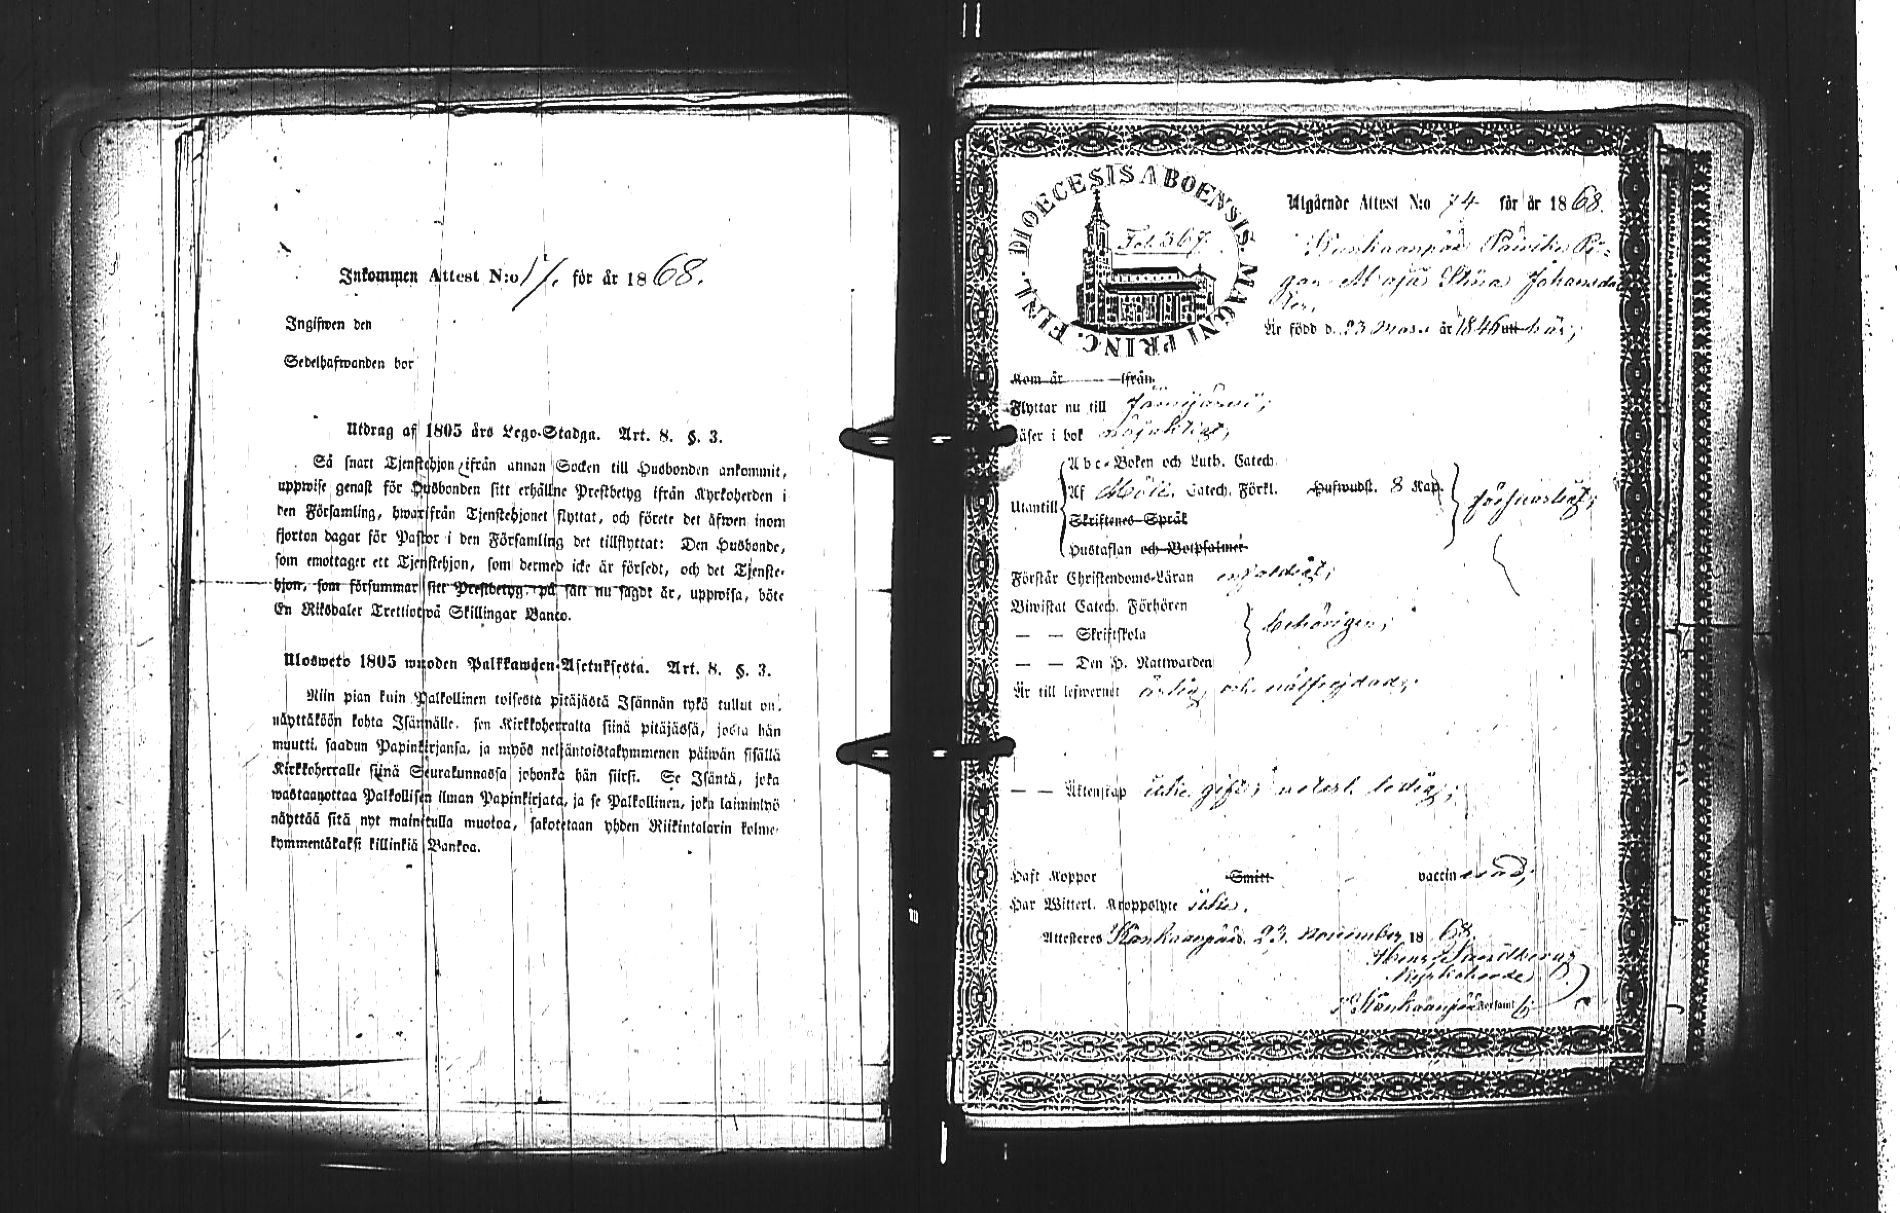 Inkommen Attest N:o 17. för år 1868.
Ingifwen den
Sedelhafwanden bor
Utdrag af 1805 års Lego-Stadga. Art. 8. §. 3.
Så snart Tjenstehjon ifrån annan Socken till Husbonden ankommit,
uppwise genast för Husbonden sitt erhållne Prestbetyg ifrån Kyrkoherden i
den Församling, hwarifrån Tjenstehjonet flyttat, och förete det äfwen inom
fjorton dagar för Pastor i den Församling det tillflyttat: Den Husbonde,
som emottager ett Tjenstehjon, som dermed icke är försedt, och det Tjenste-
hjon, som försummar sitt Prestbetyg, på sätt nu sagdt är, uppwisa, böte
En Riksdaler Trettiotwå Skillingar Banco.
Ulosweto 1805 wuoden Palkkawäen-Asetuksesta. Art. 8. §. 3.
Niin pian kuin Palkollinen toisesta pitäjästä Isännän tykö tullut on,
näyttäköön kohta Isännälle, sen Kirkkoherralta siinä pitäjässä, josta hän
muutti, saadun Papinkirjansa, ja myös neljäntoistakymmenen päiwän sisällä
Kirkkoherralle siinä Seurakunnassa johonka hän siirsi. Se Isäntä, joka
wastaanottaa Palkollisen ilman Papinkirjata, ja se Palkollinen, joka laiminlyö
näyttää sitä nyt mainitulla muotoa, sakotetaan yhden Riikintalarin kolme-
kymmentäkaksi killinkiä Bankoa.
DIOECESIS ABOENSIS MAGNI PRINC. FINL.
Fol. 367.
Utgående Attest N:o 74 för år 1868.
Kankaanpää Pi-
gan Maja Stina Johansdot-
ter,
Är född d. 23 Mars år 1846 utt här;
Kom år ifrån
Flyttar nu till Jämijärvi;
Läser i bok nöjaktigt;
Abc-Boken och Luth. Catech.
Utantill
Af Catech. Förkl. Hufwudst. 8 Kap.
försvarligt;
Skriftenes Språk
Hustaflan och Botpsalmer
Förstår Christendoms-Läran enfaldigt;
Biwistat Catech. Förhören
— — Skriftskola
behörigen;
— — Den H. Nattwarden
Är till lefwernet ärlig och välfrejdad;
— — Äktenskap icke gift; veterl. ledig;
Haft Koppor Smitt vaccinerad;
Har Witterl. Kroppslyte icke.
Attesteres Kankaanpää d. 23. november 1868.
Sandberg
Kyrkoherde
i Kankaanpää Församl.